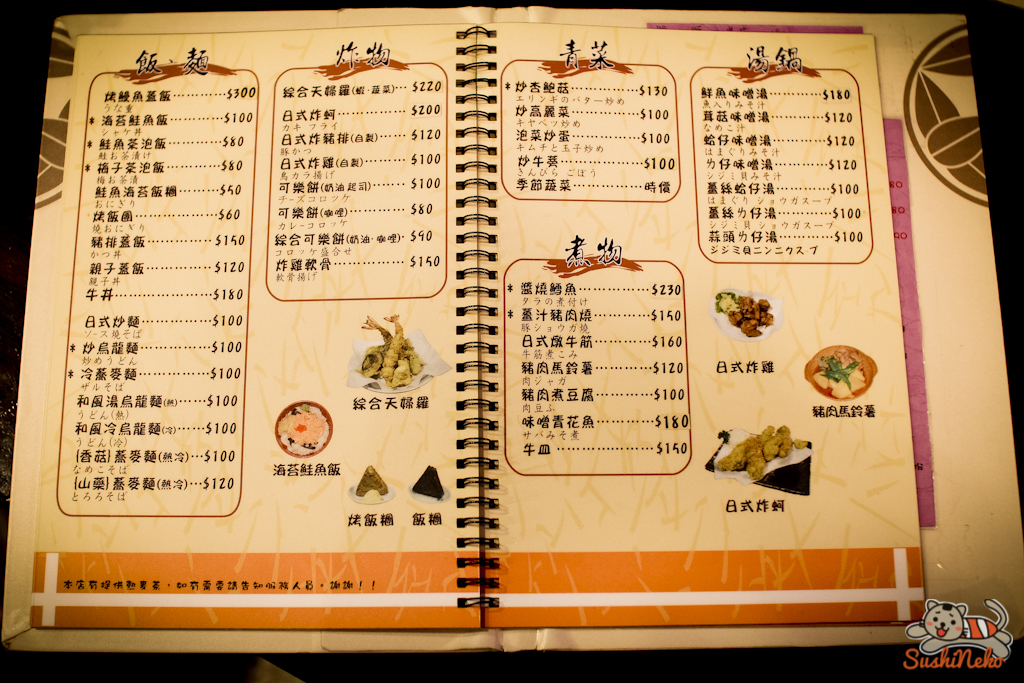 飯、麵
烤鰻魚蓋飯 $300
うな重
* 海苔鮭魚飯 $100
シャケ丼
* 鮭魚茶泡飯 $80
鮭お茶漬け
* 梅子茶泡飯 $80
梅お茶漬
鮭魚海苔飯糰 $50
おにぎり
烤飯糰 $60
焼おにぎり
豬排蓋飯 $150
かつ丼
親子蓋飯 $120
親子丼
牛丼 $180
日式炒麵 $100
ソース焼そば
* 炒烏龍麵 $100
炒めうどん
* 冷蕎麥麵 $100
ザルそば
和風湯烏龍麵(熱) $100
うどん(熱)
和風冷烏龍麵(冷) $100
うどん(冷)
{香菇}蕎麥麵(熱冷) $100
なめこそば
{山藥}蕎麥麵(熱冷) $120
とろろそば
炸物
綜合天婦羅(蝦‧蔬菜) $220
日式炸蚵 $200
カキフライ
日式炸豬排(自製) $120
豚かつ
日式炸雞(自製) $100
鳥カラ揚げ
可樂餅(奶油起司) $100
チーズコロッケ
可樂餅(咖哩) $80
カレーコロッケ
綜合可樂餅(奶油‧咖哩) $90
コロッケ盛合せ
炸雞軟骨 $150
軟骨揚げ
綜合天婦羅
海苔鮭魚飯
烤飯糰
飯糰
本店有提供熱麥茶，如有需要請告知服務人員，謝謝！！
青菜
* 炒杏鮑菇 $130
エリンギのバター炒め
炒高麗菜 $100
キャベツ炒め
泡菜炒蛋 $100
キムチと玉子炒め
炒牛蒡 $100
きんぴらごぼう
季節蔬菜 時價
煮物
* 醬燒鱈魚 $230
タラの煮付け
* 薑汁豬肉燒 $150
豚ショウガ焼
日式燉牛筋 $160
牛筋煮こみ
豬肉馬鈴薯 $120
肉ジャガ
豬肉煮豆腐 $100
肉豆ふ
味噌青花魚 $180
サバみそ煮
牛皿 $150
湯鍋
鮮魚味噌湯 $180
魚入りみそ汁
茸菇味噌湯 $120
なめこ汁
蛤仔味噌湯 $120
はまぐりみそ汁
ㄌ仔味噌湯 $120
シジミ貝みそ汁
薑絲蛤仔湯 $100
はまぐりショウガスープ
薑絲ㄌ仔湯 $100
シジミ貝ショウガスープ
蒜頭ㄌ仔湯 $100
ジジミ貝ニンニクスープ
日式炸雞
豬肉馬鈴薯
日式炸蚵
SushiNeko